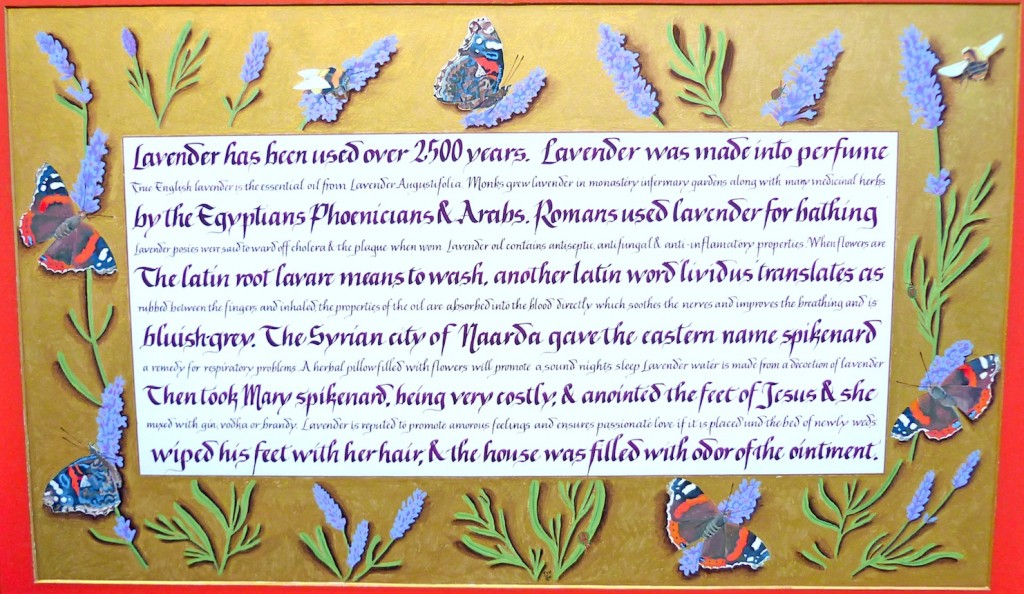 Lavender has been used over 2500 years. Lavender was made into perfume
True English lavender is the essential oil from Lavender Augustifolia. Monks grew lavender in monastery infermary gardens along with many medicinal herbs
by the Egyptians Phoenicians & Arabs. Romans used lavender for bathing
Lavender posies were said to ward off cholera & the plague when worn. Lavender oil contains antiseptic, antifungal & anti-inflamatory properties. When flowers are
The latin root lavare means to wash, another latin word lividus translates as
rubbed between the fingers and inhaled the properties of the oil are absorbed into the blood directly which soothes the nerves and improves the breathing and is
bluish-grey. The Syrian city of Naarda gave the eastern name spikenard
a remedy for respiratory problems. A herbal pillow filled with flowers will promote a sound nights sleep Lavender water is made from a decotion of lavender
Then took Mary spikenard, being very costly, & anointed the feet of Jesus & she
mixed with gin, vodka or brandy. Lavender is reputed to promote amorous feelings and ensures passionate love if it is placed und the bed of newly weds
wiped his feet with her hair, & the house was filled with odor of the ointment.